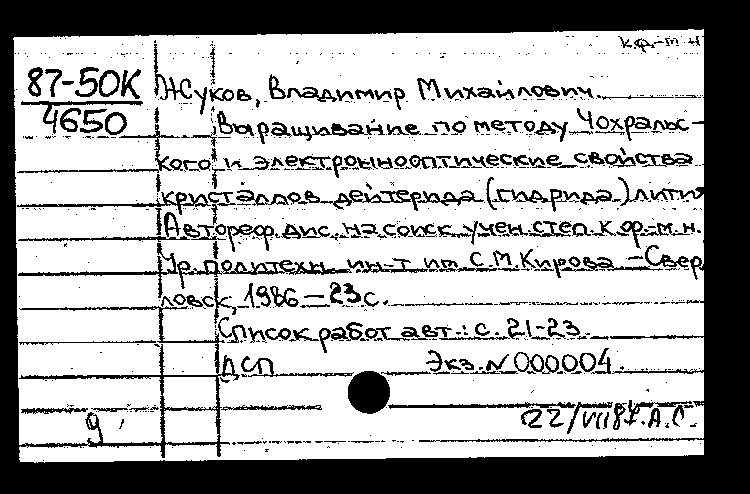 к.ф.-м н
87-50К
4650
Жуков, Владимир Михайлович
Выращивание по методу Чохральс-
кого и электроннооптические свойства
кристаллов дейтерида (гидрида) лития
Автореф. дис. на соиск. учен. степ. к.ф.-м.н.
Ур. политехн. ин-т им. С.М.Кирова - Сверд
ловск, 1986 - 23 с.
Список работ авт.: с. 21-23.
ДСП Экз. N 000004.
9
22/VII 87. А.С.